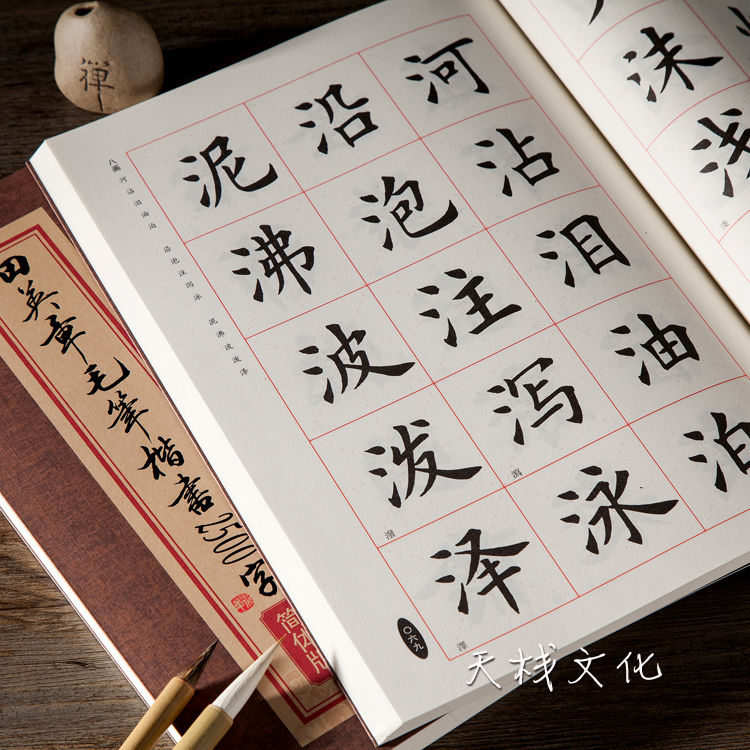 禪
沫
浅
淺
河沾泪油泊
沿泡注泻泳
瀉
泥沸波泼泽
潑
澤
八画 河沾泪油泊 沿泡注泻泳 泥沸波泼泽
〇六九
田英章毛筆楷書2500字
简体版
天栈文化